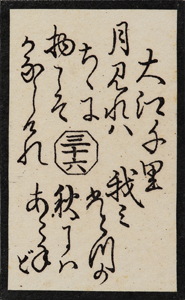 大江千里
月見れハ
ちゝに
物こそ
かなしけれ
三十六
我ミ
ひとつの
秋にハ
あらねど